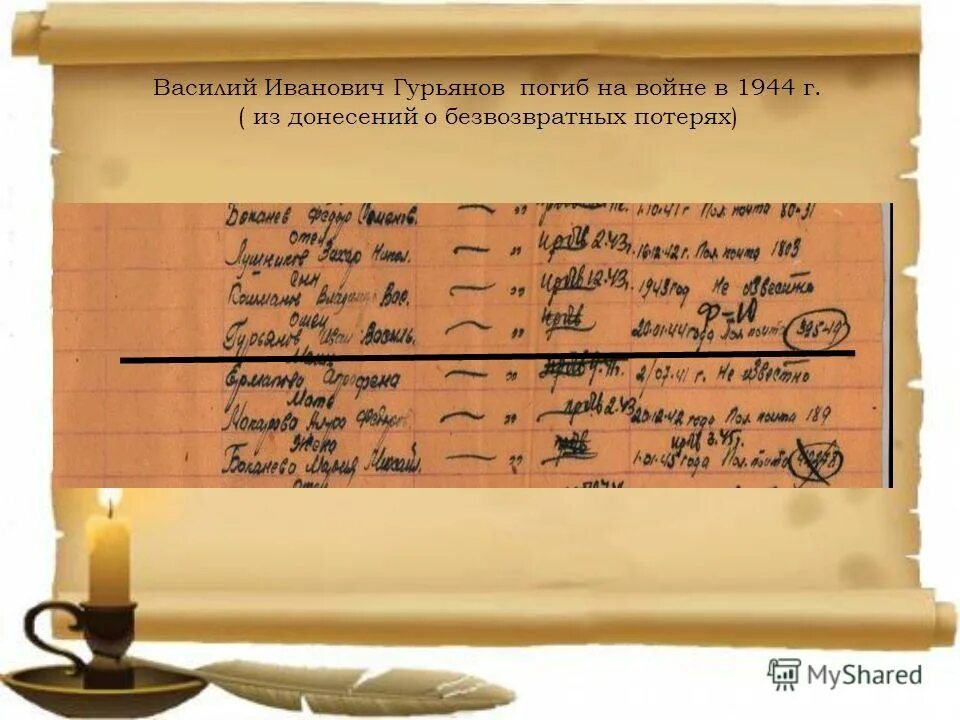 Василий Иванович Гурьянов погиб на войне в 1944 г.
( из донесений о безвозвратных потерях)
Боканев Федор 1.10.41 г Пол. почта 80-31
отец
Лушников Захар Никол. — „ прдв 2.43г. 16.12.42 г. Пол. почта 1808
сын
Владимир Вас. — „ прдв 12.43г. 1943 год Не известно
отец Ф-10
Гурьянов Иван Василь. — „ прдв 20.01.44 года Пол. почта 39549
мать
Агрофена — „ 2/07.41 г. Не известно
мать
Федоров. — „ прдв 2.43 20.12.42 года Пол. почта 189
жена прдв 3.45г.
Боканева Мария Михайл. — „ 1.01.45 года Пол. почта
отец
MyShared